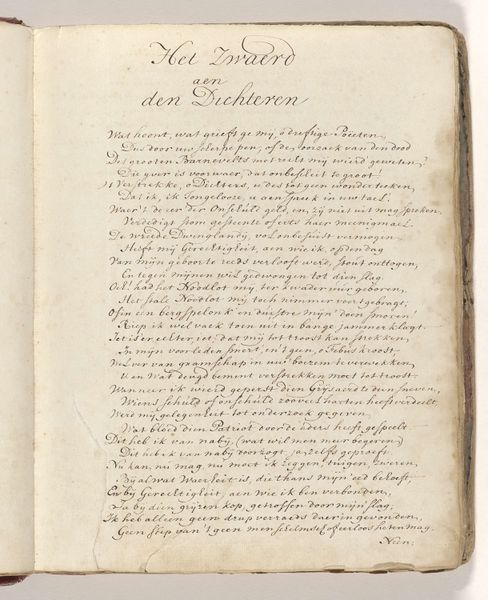 Het Zwaerd
aen
den Dichteren
Wat hoont, wat grieft ge my, ô deftige Poëeten,
Dus door uw scherpe pen, of de oorzaek van den dood
Des grooten Barnevelts met recht my wierd geweten?
Die yver is voorwaer, dat onbescheit te groot!
't Verstrekke, o Dichters, u des tot geen wonderteken,
Dat ik, ik tongelooze, u aenspreek in uw tael.
Waer 't de eer der Onschuld geld, en, zy niet uit mag spreken,
Verdedigt stom gesteente oferts haer meenigmael.
De wreede Dwinglandy, vol onbesuist vermogen
Heeft my Gerechtigheit, aen wie ik, op den dag
Van mijn geboorte reeds verlooft werd, stout onttogen,
En tegen mijnen wil gedwongen tot dien slag.
Och! had het Noodlot my, ter kwader uur geboren,
Het stale Noodlot my toch nimmer voortgebragt;
Of in een bergspelonk en duistre mijn doen smoren!
Riep ik wel vaek toen uit in bange jammerklagt.
Iet is er echter, iet, dat my tot troost kan strekken,
In mijn voorleden smert, en 't geen, o Febus kroost,
Wel ver van gramschap in uw boezem te verwekken,
U en Wat deugd bemint verstrekken moet tot troost.
Wanneer ik wierd geperst dien Grysaerd te doen sneven,
Wiens schuld of onschuld zooveel harten heeft verdeelt,
Werd my gelegenheit tot onderzoek gegeven
Wat bloed dien Patriot door de aders heeft gespeelt.
Dit heb ik van naby, (wat wil men meer begeren)
Dit heb ik van naby doorzogt, ja, zelfs geproeft.
Nu kan, nu mag, nu moet ik zeggen, tuigen, zweren,
By al wat Waerheit is, die thans mijn eed behoeft,
En by Gerechtigheit, aen wie ik ben verbonden,
Ja by dien gryzen kop, getroffen door mijn slag,
Ik heb alleen geen drup verraeds daer in gevonden,
Geen stip van 't geen men schelms of eerloos heten mag.
Neen;